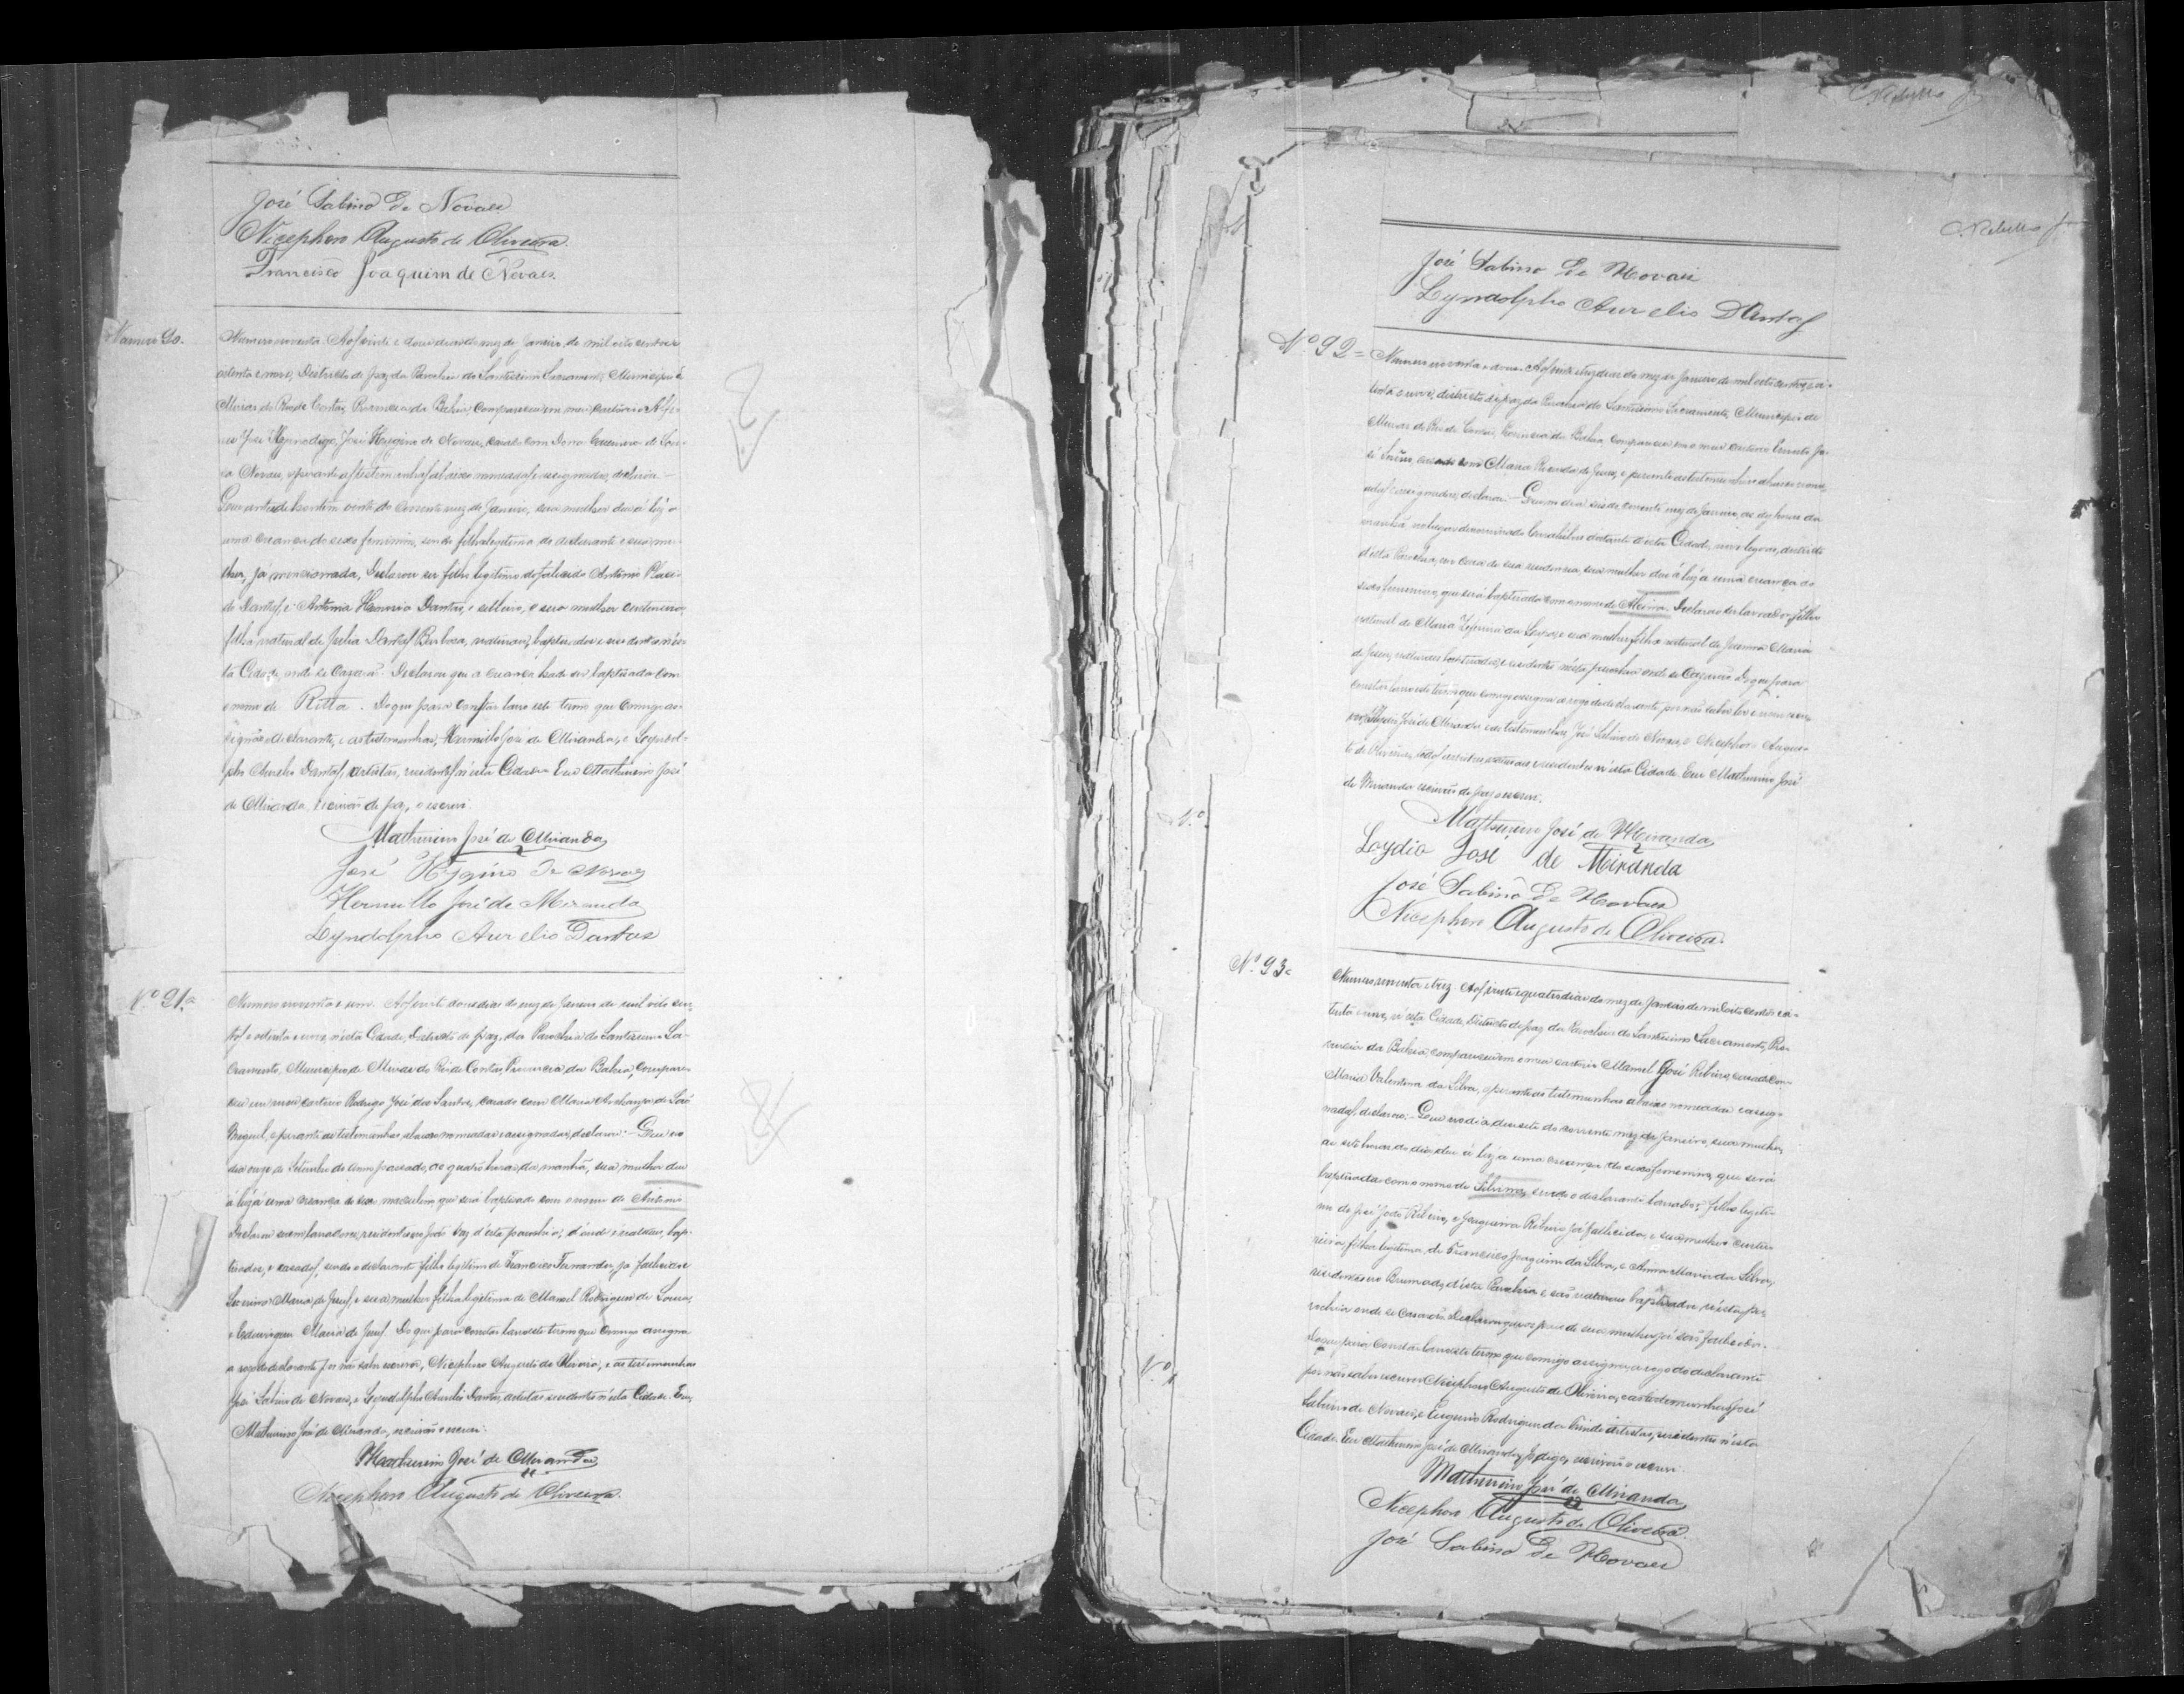 José Sabino de Novaes
Nicephoro Augusto de Oliveira.
Francisco Joaquim de Novaes.
Numero 90.
Numero noventa. Aos vinte e dous dias do mez de Janeiro de mil oito centos e
oitenta e nove, Districto de paz da Parochia do Santissimo Sacramento, Municipio de
Minas do Rio de Contas, Provincia da Bahia, compareceu em meu cartorio
José Hygino digo, José Hygino de Novaes, casado com Dona de
Novaes, e perante as testemunhas abaixo nomeadas e assignadas, declarou:
Que ante de hontem vinte do corrente mez de Janeiro, sua mulher deu á luz a
uma creança do sexo feminino, sendo filha legitima do declarante e sua mu-
lher, já mencionada, Declarou ser filho legitimo do falecido Antonio
Dantas, e Antonia Dantas, e selleiro, e sua mulher costureira
filha natural de Julia Dantas Barbosa, naturaes, baptisados e residentes nes-
ta Cidade, onde se Cazarão. Declarou que a creança hade ser baptisada com
o nome de Ritta. Do que para constar lavro este termo que comigo as-
signão o declarante, e as testemunhas, Hermillo José de Miranda, e Lyndol-
pho Aurelio Dantas, artistas, residentes n'esta Cidade. Eu Mathurino José
de Miranda, escrivão de paz, o escrevi.
Mathurino José de Miranda
José Hygino de Novaes
Hermillo José de Miranda
Lyndolpho Aurelio Dantas
Nº 91.
Numero noventa e um. Aos vinte dous dias do mez de Janeiro de mil oito cen-
tos e oitenta e nove, n'esta Cidade, Districto de paz, da Parochia do Santissimo Sa-
cramento, Municipio de Minas do Rio de Contas, Provincia da Bahia, compare-
ceu em meu cartorio Rodrigo José dos Santos, casado com Maria Archanja de São
Miguel, e perante as testemunhas abaixo nomeadas e assignadas, declarou: Que no
dia onze de Setembro do anno passado, as quatro horas da manhã, sua mulher deu
á luz a uma creança do sexo masculino que será baptisado com o nome de Antonio
Declarou serem lavradores, residentes no d'esta parochia, d'onde são naturaes, bap-
tisados, e casados, sendo o declarante filho legitimo de Francisco Fernandes, já fallecido e
Maria de Jesus, e sua mulher filha legitima de Manoel Rodrigues de Souza,
e Maria de Jesus. Do que para constar lavro este termo que comigo assigna
a rogo do declarante por não saber escrever, Nicephoro Augusto de Oliveira, e as testemunhas
José Sabino de Novaes, e Lyndolpho Aurelio Dantas, artistas residentes n'esta Cidade. Eu,
Mathurino José de Miranda, escrivão o escrevi.
Mathurino José de Miranda
Nicephoro Augusto de Oliveira.
José Sabino de Novaes
Lyndolpho Aurelio Dantas
Nº 92
Numero noventa e dous. Aos vinte e trez dias do mez de Janeiro de mil oito centos e oi-
tenta e nove, districto de paz da Parochia do Santissimo Sacramento, Municipio de
Minas do Rio de Contas, Provincia da Bahia, compareceu em o meu cartorio Jo-
sé casado com Maria de Jesus, e perante as testemunhas abaixo nome-
adas e assignadas, declarou: Que no dia do corrente mez de Janeiro, as dez horas da
manhã no lugar denominado distante d'esta Cidade, nove legoas, districto
d'esta Parochia, em casa de sua residencia, sua mulher deu á luz a uma creança do
sexo femenino, que será baptisada com o nome de Declarou ser lavrador, filho
natural de Maria e sua mulher filha natural de Joanna Maria
de Jesus, naturaes baptisados, e residentes nesta parochia onde se Cazarão. Do que para
constar lavro este termo que comigo assigna a rogo do declarante por não saber ler e nem escre-
ver, Loydio José de Miranda e as testemunhas José Sabino de Novaes, e Nicephoro Augus-
to de Oliveira, todos artistas naturaes e residentes n'esta Cidade. Eu Mathurino José
de Miranda escrivão de paz o escrevi.
Mathurino José de Miranda
Loydio José de Miranda
José Sabino de Novaes
Nicephoro Augusto de Oliveira.
Nº 93
Numero noventa e trez. Aos vinte e quatro dias do mez de Janeiro de mil oito centos e oi-
tenta e nove, n'esta Cidade, Districto de paz da Parochia do Santissimo Sacramento, Pro-
vincia da Bahia, compareceu em o meu cartorio Manoel José Ribeiro, casado com
Maria Valentina da Silva, e perante as testemunhas abaixo nomeadas e assig-
nadas, declarou: Que no dia dezesete do corrente mez de Janeiro, sua mulher,
as sete horas do dia, deu á luz a uma creança do sexo femenino, que será
baptisada com o nome de sendo o declarante lavrador, filho legiti-
mo de José João Ribeiro, e Joaquina Ribeiro já fallecida, e sua mulher costu-
reira, filha legitima de Francisco Joaquim da Silva, e Anna Maria da Silva,
residentes no Brumado, d'esta Parochia e são naturaes baptisados n'esta pa-
rochia onde se Casarão. Declarou que os paes de sua mulher já são fallecidos.
Do que para constar lavro este termo que comigo assigna, a rogo do declarante
por não saber escrever Nicephoro Augusto de Oliveira, e as testemunhas José
Sabino de Novaes, e Eugenio Rodrigues da artistas, residentes n'esta
Cidade. Eu Mathurino José de Miranda, digo, escrivão o escrevi.
Mathurino José de Miranda
Nicephoro Augusto de Oliveira.
José Sabino de Novaes